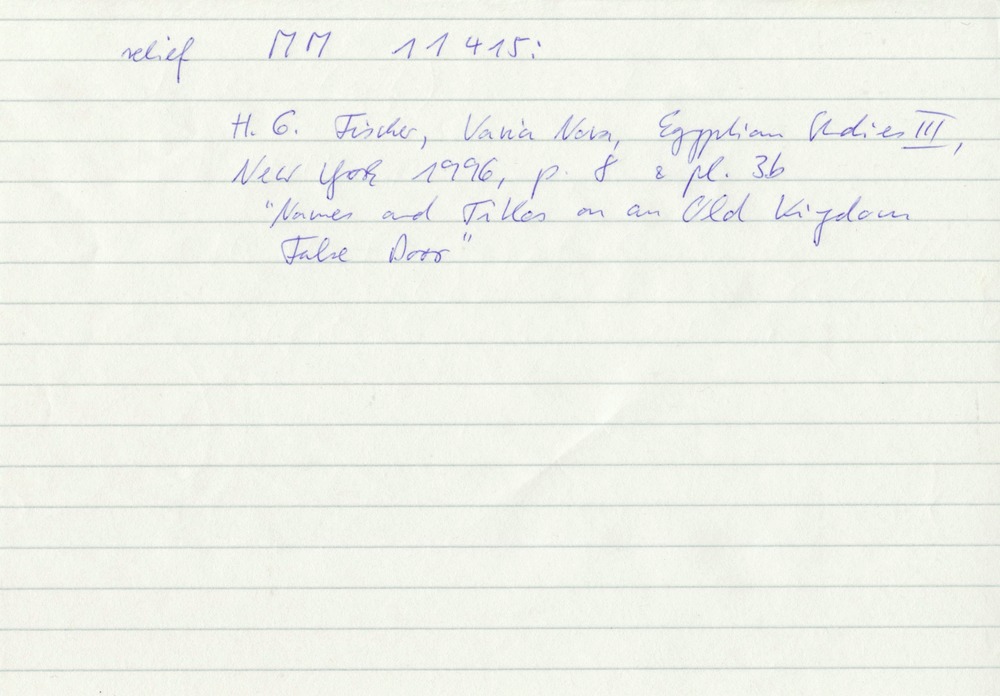 relief MM 11415:
H. G. Fischer, Varia Nova, Egyptian Studies III,
New York 1996, p. 8 & pl. 3b
"Names and Titles on an Old Kingdom
False Door"